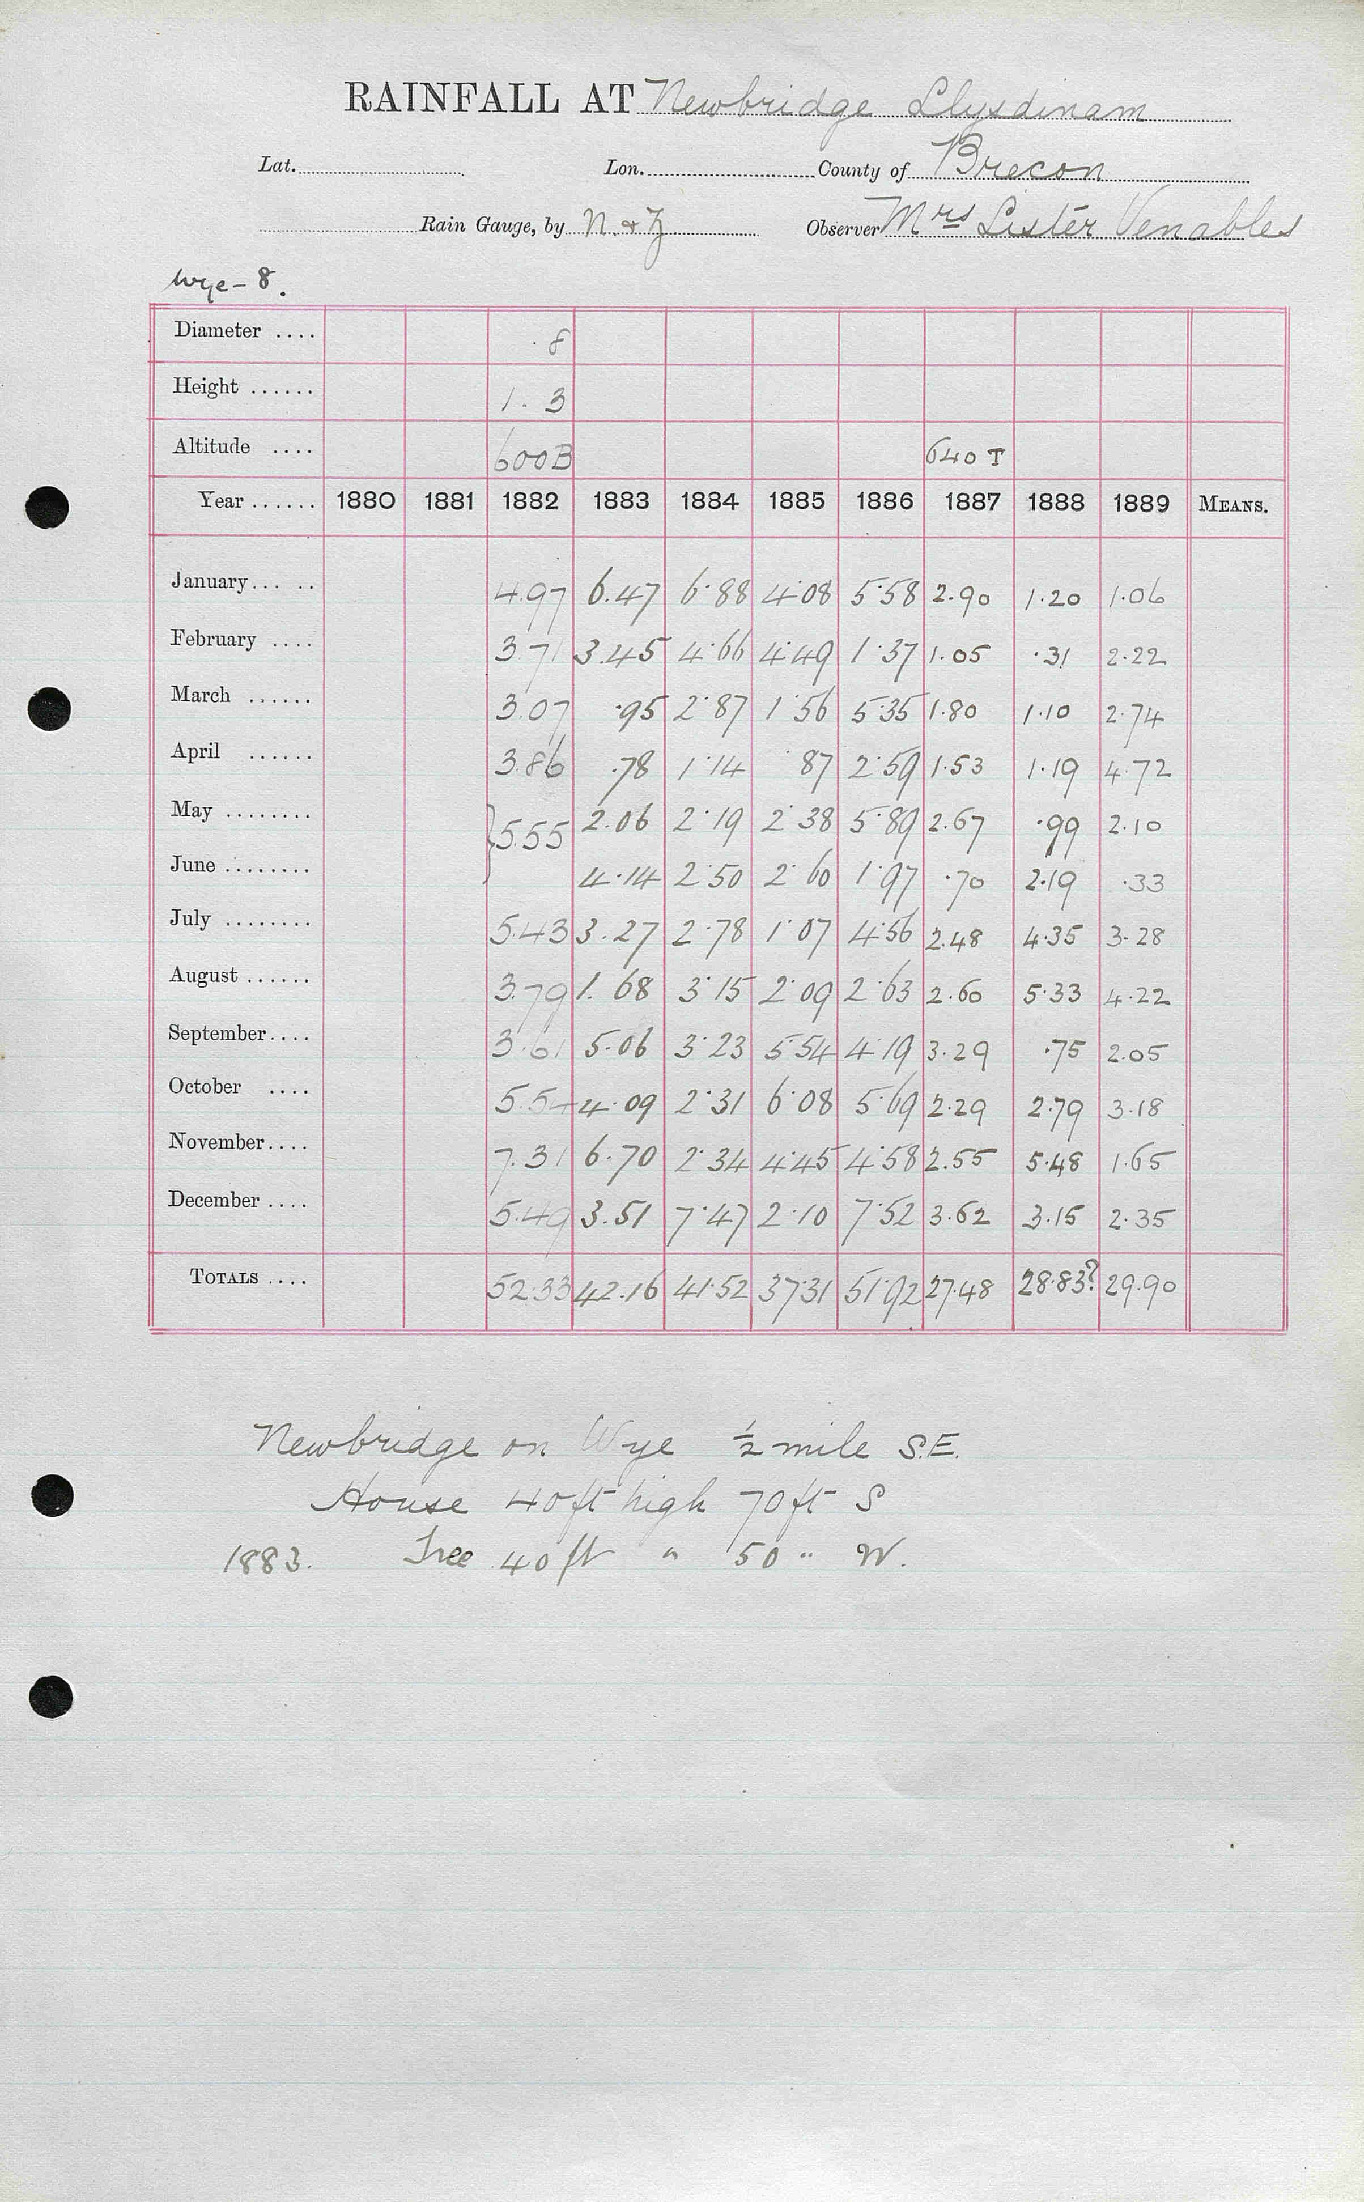 RAINFALL AT Newbridge Llysdinam
Lat. Lon. County of Brecon
Rain Gauge, by N. & Z Observer Mrs Lister Venables
Wye - 8.
Diameter .... 8
Height ...... 1. 3
Altitude .... 600B 640 T
Year ...... 1880 1881 1882 1883 1884 1885 1886 1887 1888 1889 MEANS.
January... .. 4.97 6.47 6.88 4.08 5.58 2.90 1.20 1.06
February .... 3.71 3.45 4.66 4.49 1.37 1.05 .31 2.22
March ...... 3.07 .95 2.87 1.56 5.35 1.80 1.10 2.74
April ...... 3.86 .78 1.14 .87 2.59 1.53 1.19 4.72
May ........ } 5.55 2.06 2.19 2.38 5.89 2.67 .99 2.10
June ........ 4.14 2.50 2.60 1.97 .70 2.19 .33
July ........ 5.43 3.27 2.78 1.07 4.56 2.48 4.35 3.28
August ...... 3.79 1.68 3.15 2.09 2.63 2.60 5.33 4.22
September.... 3.61 5.06 3.23 5.54 4.19 3.29 .75 2.05
October .... 5.54 4.09 2.31 6.08 5.69 2.29 2.79 3.18
November.... 7.31 6.70 2.34 4.45 4.58 2.55 5.48 1.65
December .... 5.49 3.51 7.47 2.10 7.52 3.62 3.15 2.35
TOTALS .... 52.33 42.16 41.52 37.31 51.92 27.48 28.83? 29.90
Newbridge on Wye ½ mile S.E.
House 40ft high 70ft S
1883. Tree 40 ft " 50 " W.